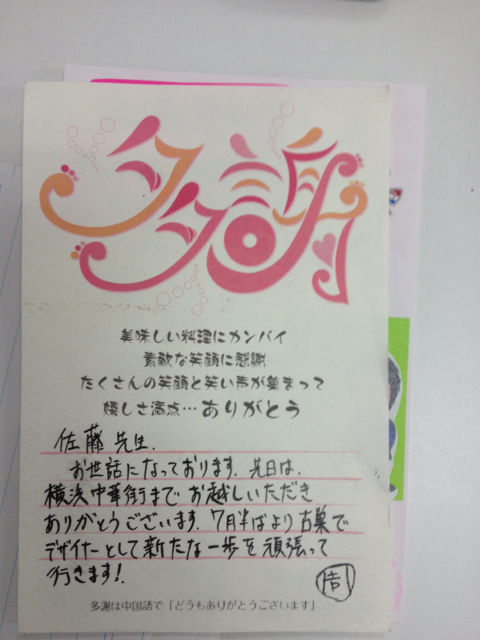 多謝
美味しい料理にカンパイ
素敵な笑顔に感謝
たくさんの笑顔と笑い声が集まって
嬉しさ満点…ありがとう
佐藤先生.
お世話になっております. 先日は.
横浜中華街まで お越しいただき
ありがとうございます. 7月半ばより古巣で
デザイナーとして新たな一歩を頑張って
行きます!
多謝は中国語で「どうもありがとうございます」